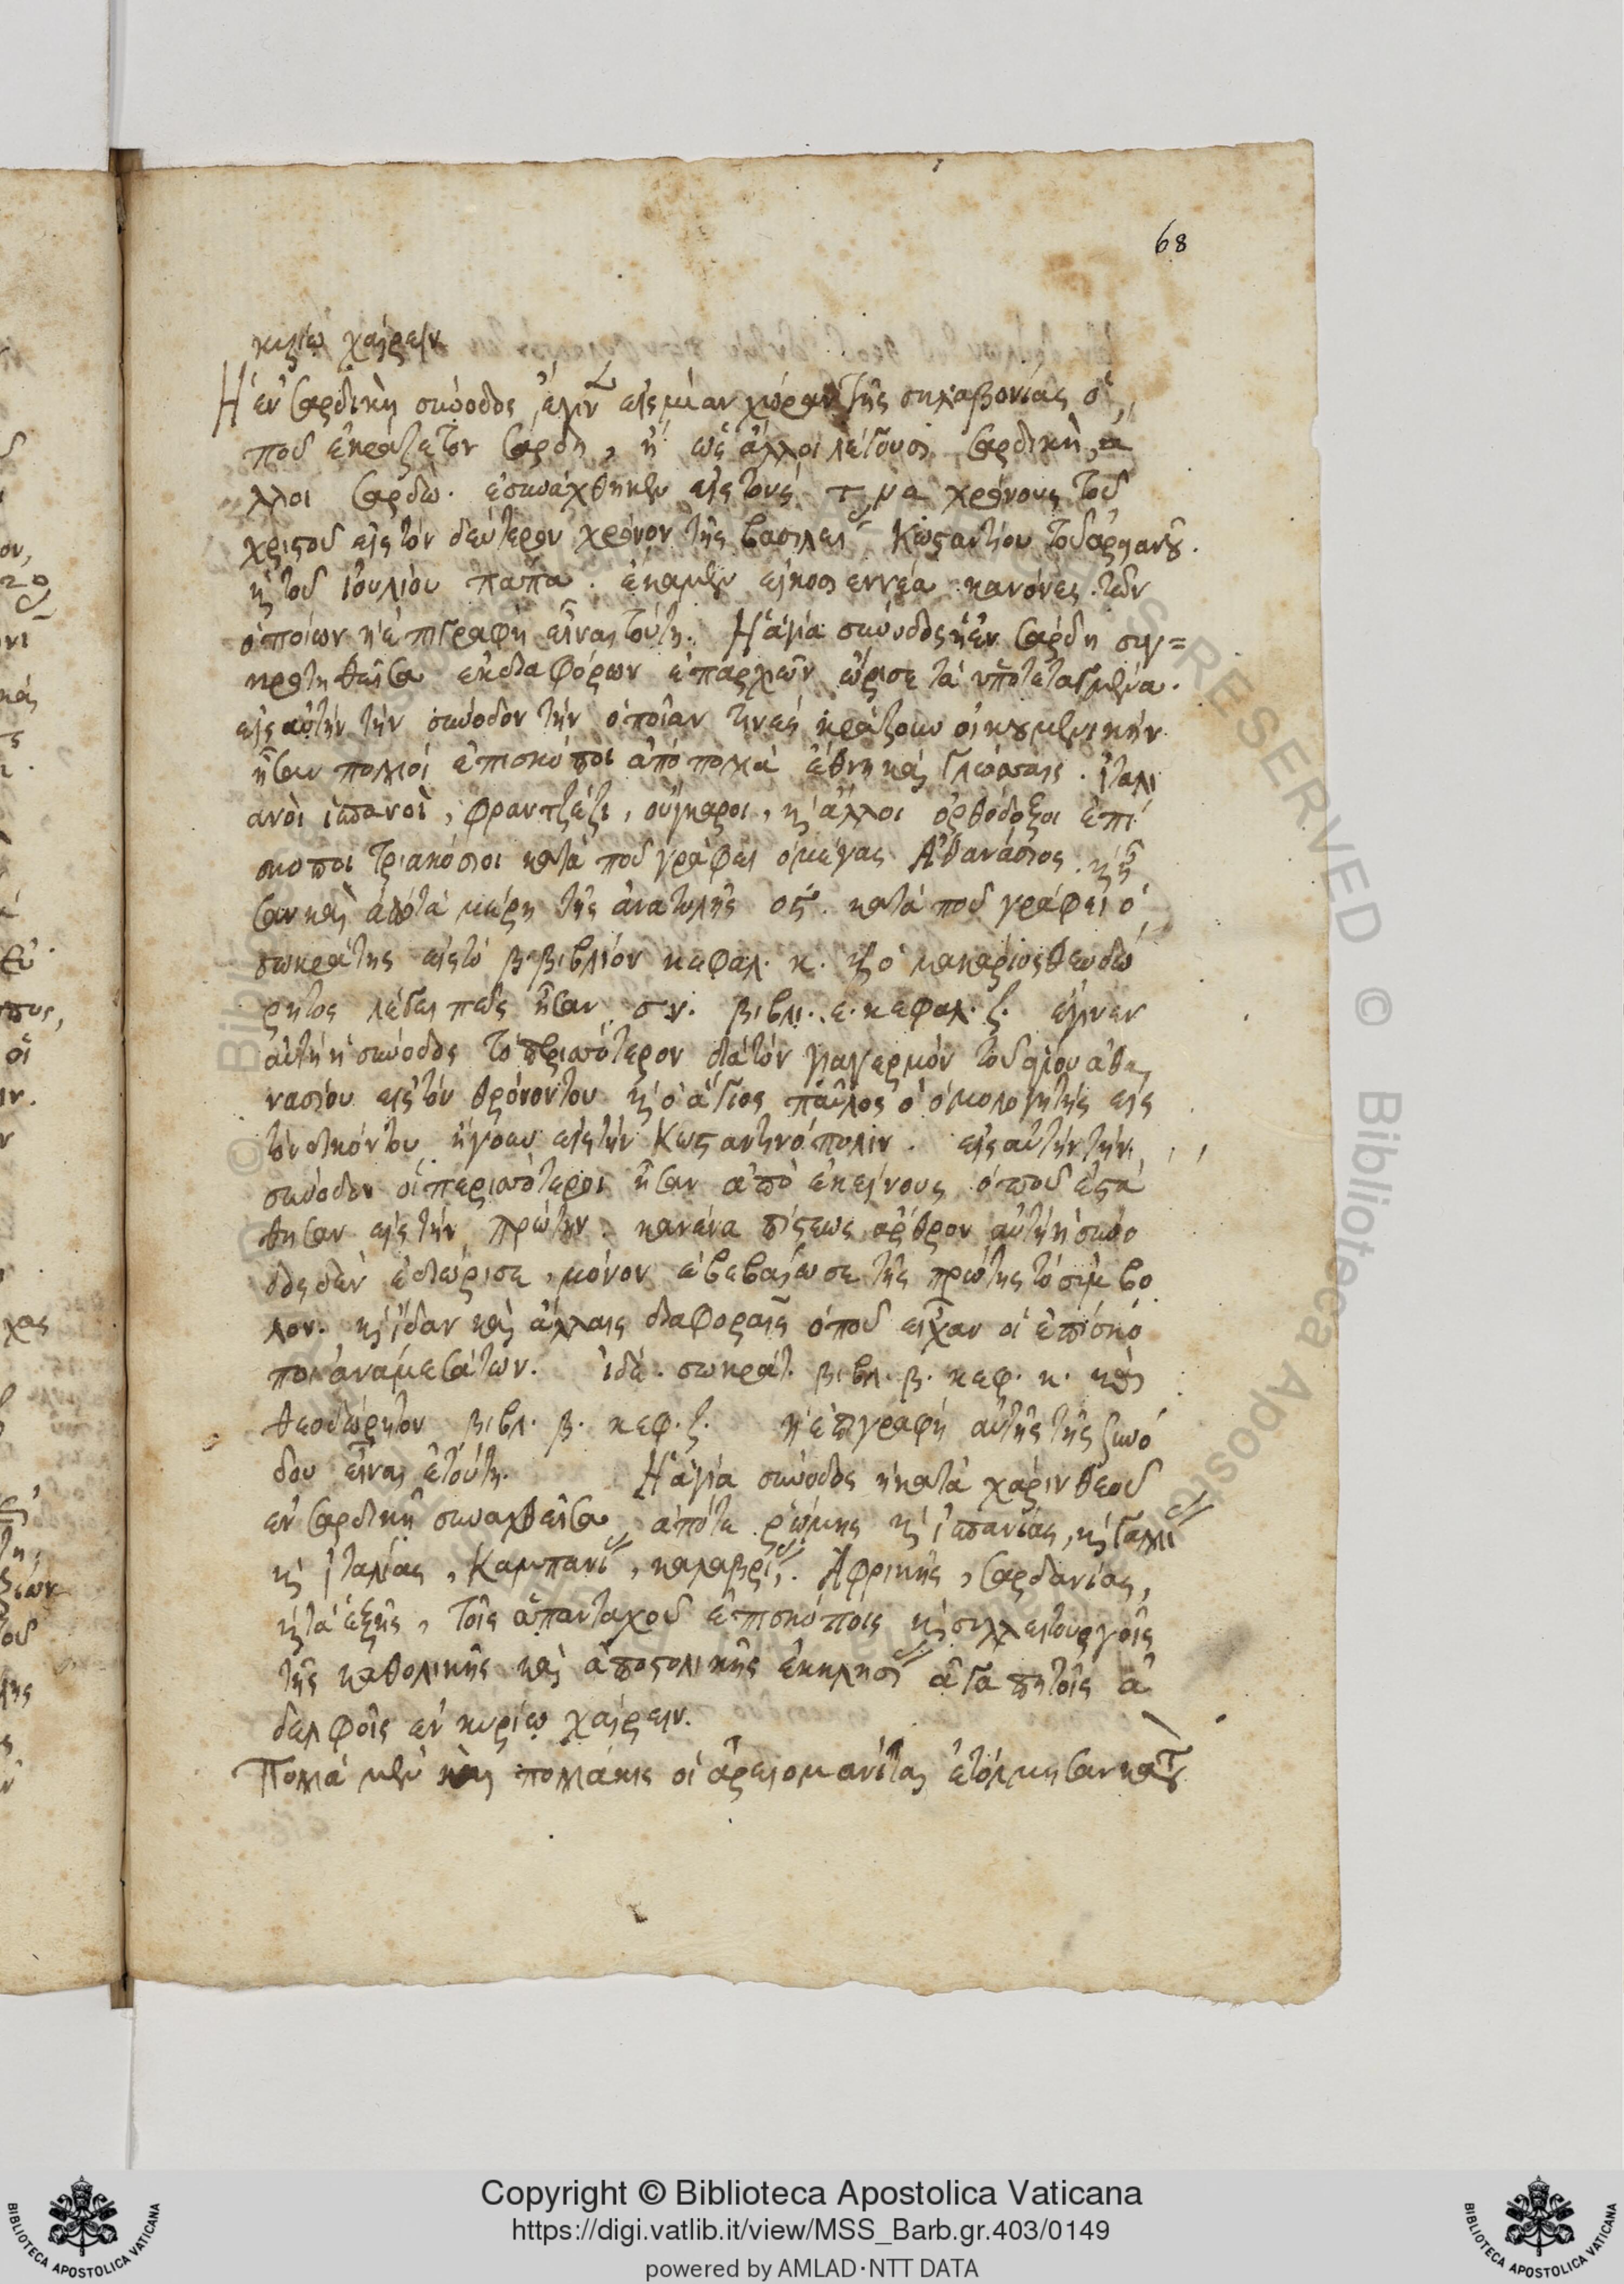 68
κυρίω χαίρειν
Ἡ ἐν σαρδικῇ σύνοδος ἔγινεν εἰς μίαν χώραν τῆς σκλαβονίας ὁ
ποῦ ἐκράζετον σάρδη, ἢ ὡς ἄλλοι λέγουσι σαρδικὴ, ἄ
λλοι σαρδώ. ἐσυνάχθηκεν εἰς τοὺς τμα χρόνους τοῦ
χριστοῦ εἰς τὸν δεύτερον χρόνον τῆς βασιλεί Κωσταντίου τοῦ ἀρειανοῦ.
κ τοῦ ἰουλίου πάπα. ἔκαμεν εἴκοσι εννέα κανόνες. τῶν
ὁποίων ἡ ἐπιγραφὴ εἶναι τούτη. Ἡ ἁγία σύνοδος ἡ ἐν σάρδῃ συγ=
κροτηθεῖσα ἐκ διαφόρων ἐπαρχιῶν ὥρισε τὰ ὑποτεταγμένα.
εἰς αὐτὴν τὴν σύνοδον τὴν ὁποῖαν τινὲς κράζουν οἰκουμενικήν
ἦσαν πολλοί ἐπισκόποι ἀπὸ πολλὰ ἔθνη καὶ γλώσσαις. ἰταλι
ανοὶ ἱσπανοὶ, φραντζέζι, οὔγκαροι, κ ἄλλοι ὀρθόδοξοι ἐπί
σκοποι τριακόσιοι κατὰ ποῦ γράφει ὁ μέγας Ἀθανάσιος. κ ἦ
σαν καὶ ἀπὸ τὰ μέρη τῆς ἀνατολῆς ος. κατὰ ποῦ γράφει ὁ
σωκράτης εἰς τὸ β βιβλίον κεφάλ. κ. κ ὁ μακάριος θεωδώ
ρητος λέγει πῶς ἦσαν σν. βιβλι. ε. κεφαλ. ζ. ἔγινεν
αὐτὴ ἡ σύνοδος τὸ περισσότερον διὰ τὸν γιαγερμόν τοῦ ἁγίου ἀθα
νασίου εἰς τὸν θρόνον του κ ὁ ἅγιος παῦλος ὁ ὁμολογητής εἰς
τὸν δικόν του ἤγουν εἰς τὴν Κωσταντινόπολιν. εἰς αὐτὴν τὴν
σύνοδον οἱ περισσότεροι ἦσαν ἀπὸ ἐκείνους ὁποῦ ἐστά
θησαν εἰς τὴν πρώτην. κανένα πίστεως ἄρθρον αὐτὴ ἡ σύνο
δος δὲν ἐδιώρισε, μόνον ἐβεβαίωσε τῆς πρώτης τὸ σίμβο
λον. κ ἴδαν καὶ ἄλλαις διαφοραῖς ὁποῦ εἶχαν οἱ ἐπισκό
ποι ἀνάμεσά των. ἰδὲ. σωκράτ. βιβλ. β. κεφ. κ. καὶ
θεοδώρητον βιβλ. β. κεφ. ζ. ἡ ἐπιγραφὴ αὐτῆς τῆς ζυνό
δου εἶναι ἐτούτη. Ἡ ἁγία σύνοδος ἡ κατὰ χάριν θεοῦ
ἐν σαρδικῇ συναχθεῖσα ἀπό τε ῥώμης κ ἱσπανίας, κ γαλλι
κ ἰταλίας, Καμπανι, καλαβρι, Ἀφρικῆς, σαρδανίας,
κ τὰ ἑξῆς, τοῖς ἁπανταχοῦ ἐπισκόποις κ συλλειτουργοῖς
τῆς καθολικῆς καὶ ἀποστολικῆς ἐκκλησι ἀγαπητοῖς ἀ
δελφοῖς ἐν κυρίω χαίρειν.
Πολλὰ μὲν καὶ πολλάκις οἱ ἀρειομανίται ἐτόλμησαν κατ
Copyright © Biblioteca Apostolica Vaticana
https://digi.vatlib.it/view/MSS_Barb.gr.403/0149
powered by AMLAD·NTT DATA